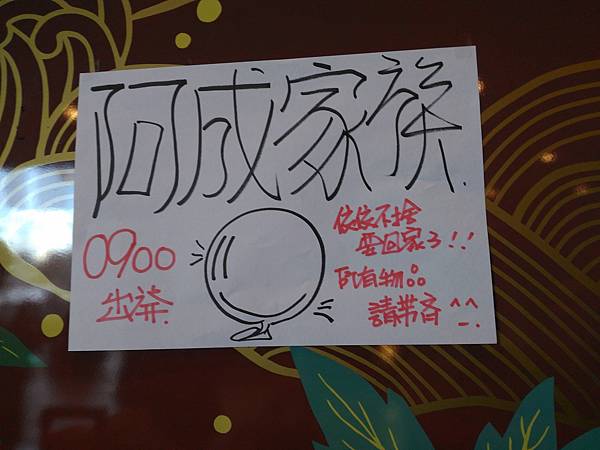 阿成家族.
0900
出發.
依依不捨
要回家了!!
所有物。。
請帶齊^_^.